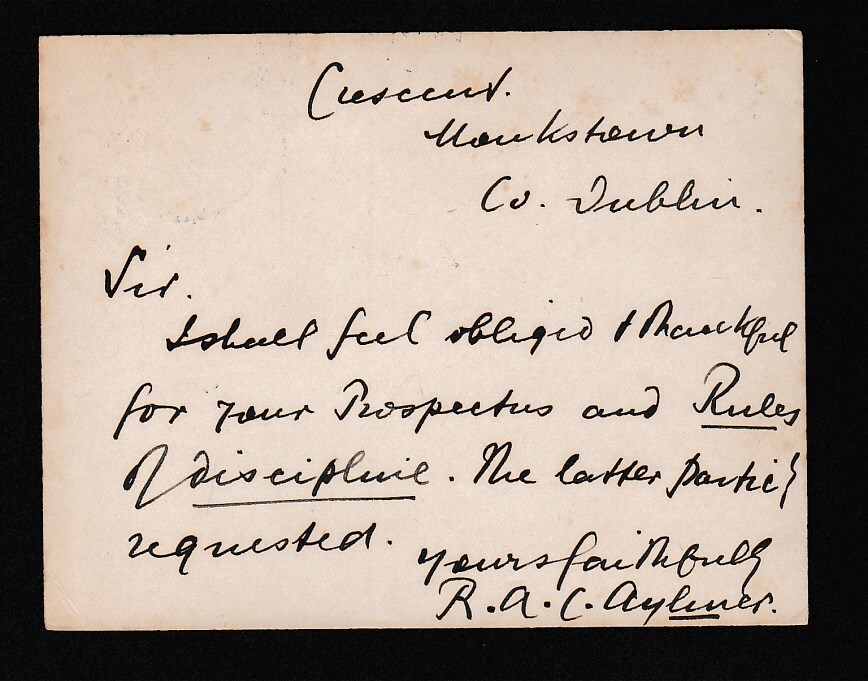 Crescent.
Monkstown
Co. Dublin.
Sir.
I shall feel obliged & thankful
for your Prospectus and Rules
of discipline. The latter partic'y
requested.
yours faithfully
R.A.C. Aylmer.